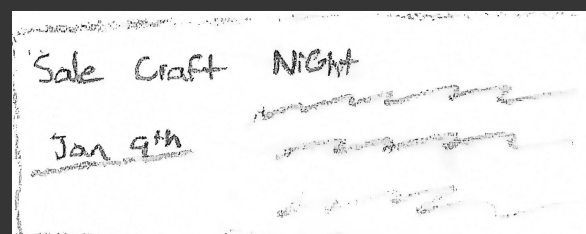 Sale Craft NiGht
Jan 9th